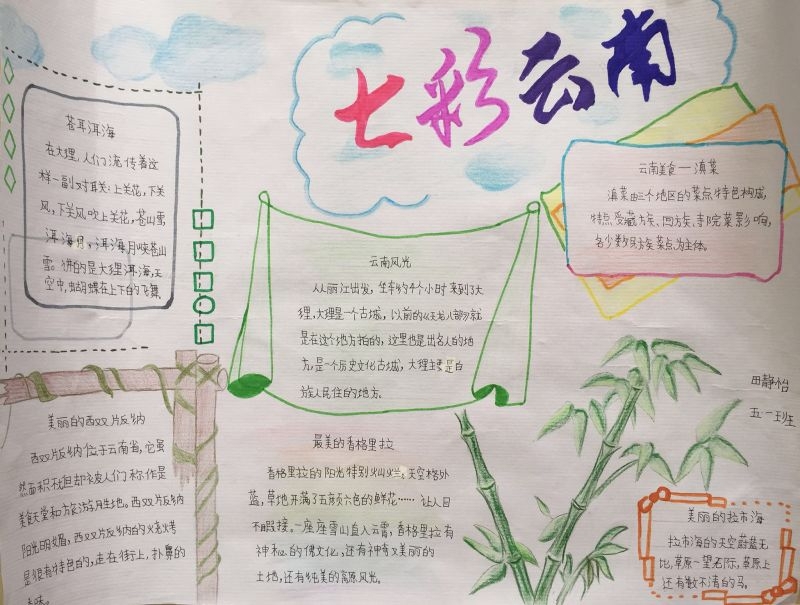 七彩云南
苍耳洱海
在大理,人们流传着这
样一副对联:上关花,下关
风,下关风吹上关花,苍山雪,
洱海月,洱海月映苍山
雪。的是大理洱海,
空中,蝴蝶在上下的飞舞。
云南美食——滇菜
滇菜由三个地区的菜点特色构成,
特点受藏族、回族、寺院菜影响,
各少数民族菜点为主体。
云南风光
从丽江出发,坐车约4个小时来到了大
理,大理是一个古城,以前的《天龙八部》就
是在这个地方拍的,这里也是出名人的地
方,是一个历史文化古城,大理主要是白
族人民住的地方。
田静怡
五·一班
美丽的西双版纳
西双版纳位于云南省,它虽
然面积不但却被人们称作是
美食天堂和旅游胜地。西双版纳
阳光明媚,西双版纳的火烧烤
是很有特色的,走在街上,扑鼻的
香味。
最美的香格里拉
香格里拉的阳光特别灿烂,天空格外
蓝,草地开满了五颜六色的鲜花……让人目
不暇接。一座座雪山直入云霄,香格里拉有
神秘的佛文化,还有神奇又美丽的
土地,还有纯美的高原风光。
美丽的拉市海
拉市海的天空蔚蓝无
比,草原一望无际,草原上
还有数不清的马。